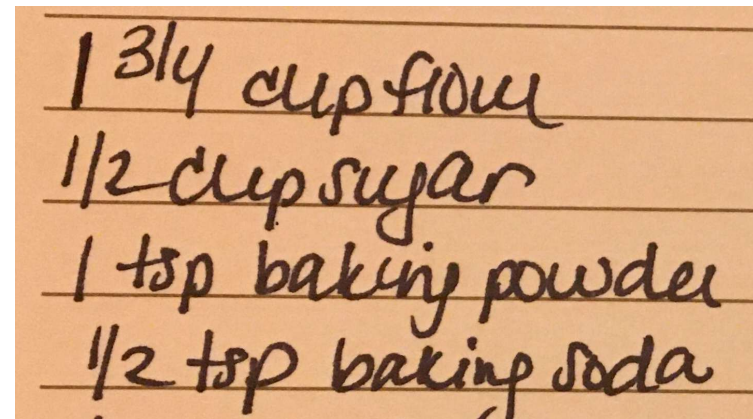 1 3/4 cup flour
1/2 cup sugar
1 tsp baking powder
1/2 tsp baking soda